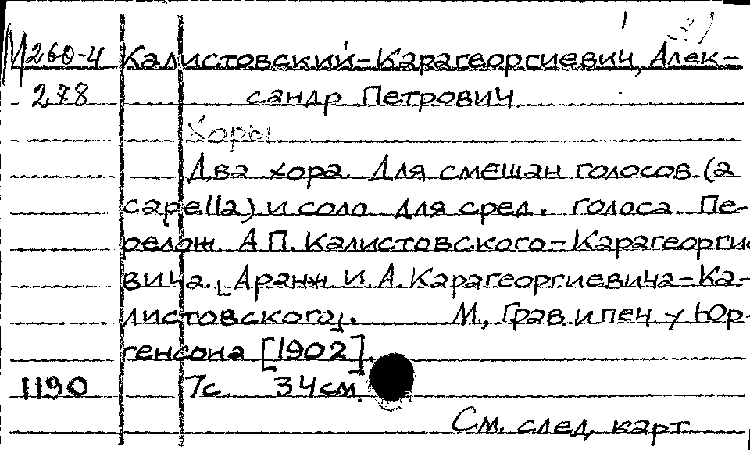 М260-4 Калистовский-Карагеоргиевич, Алек-
288 сандр Петрович
Хоры
Два хора для смешан голосов (a
capella) и соло для сред. голоса Пе-
релож А.П. Калистовского-Карагеорги
вича. [Аранж И.А. Карагеоргиевича-Ка-
листовского]. М, Грав и печ у Юр-
генсона [1902].
1190 7с 34см.
См. след, карт